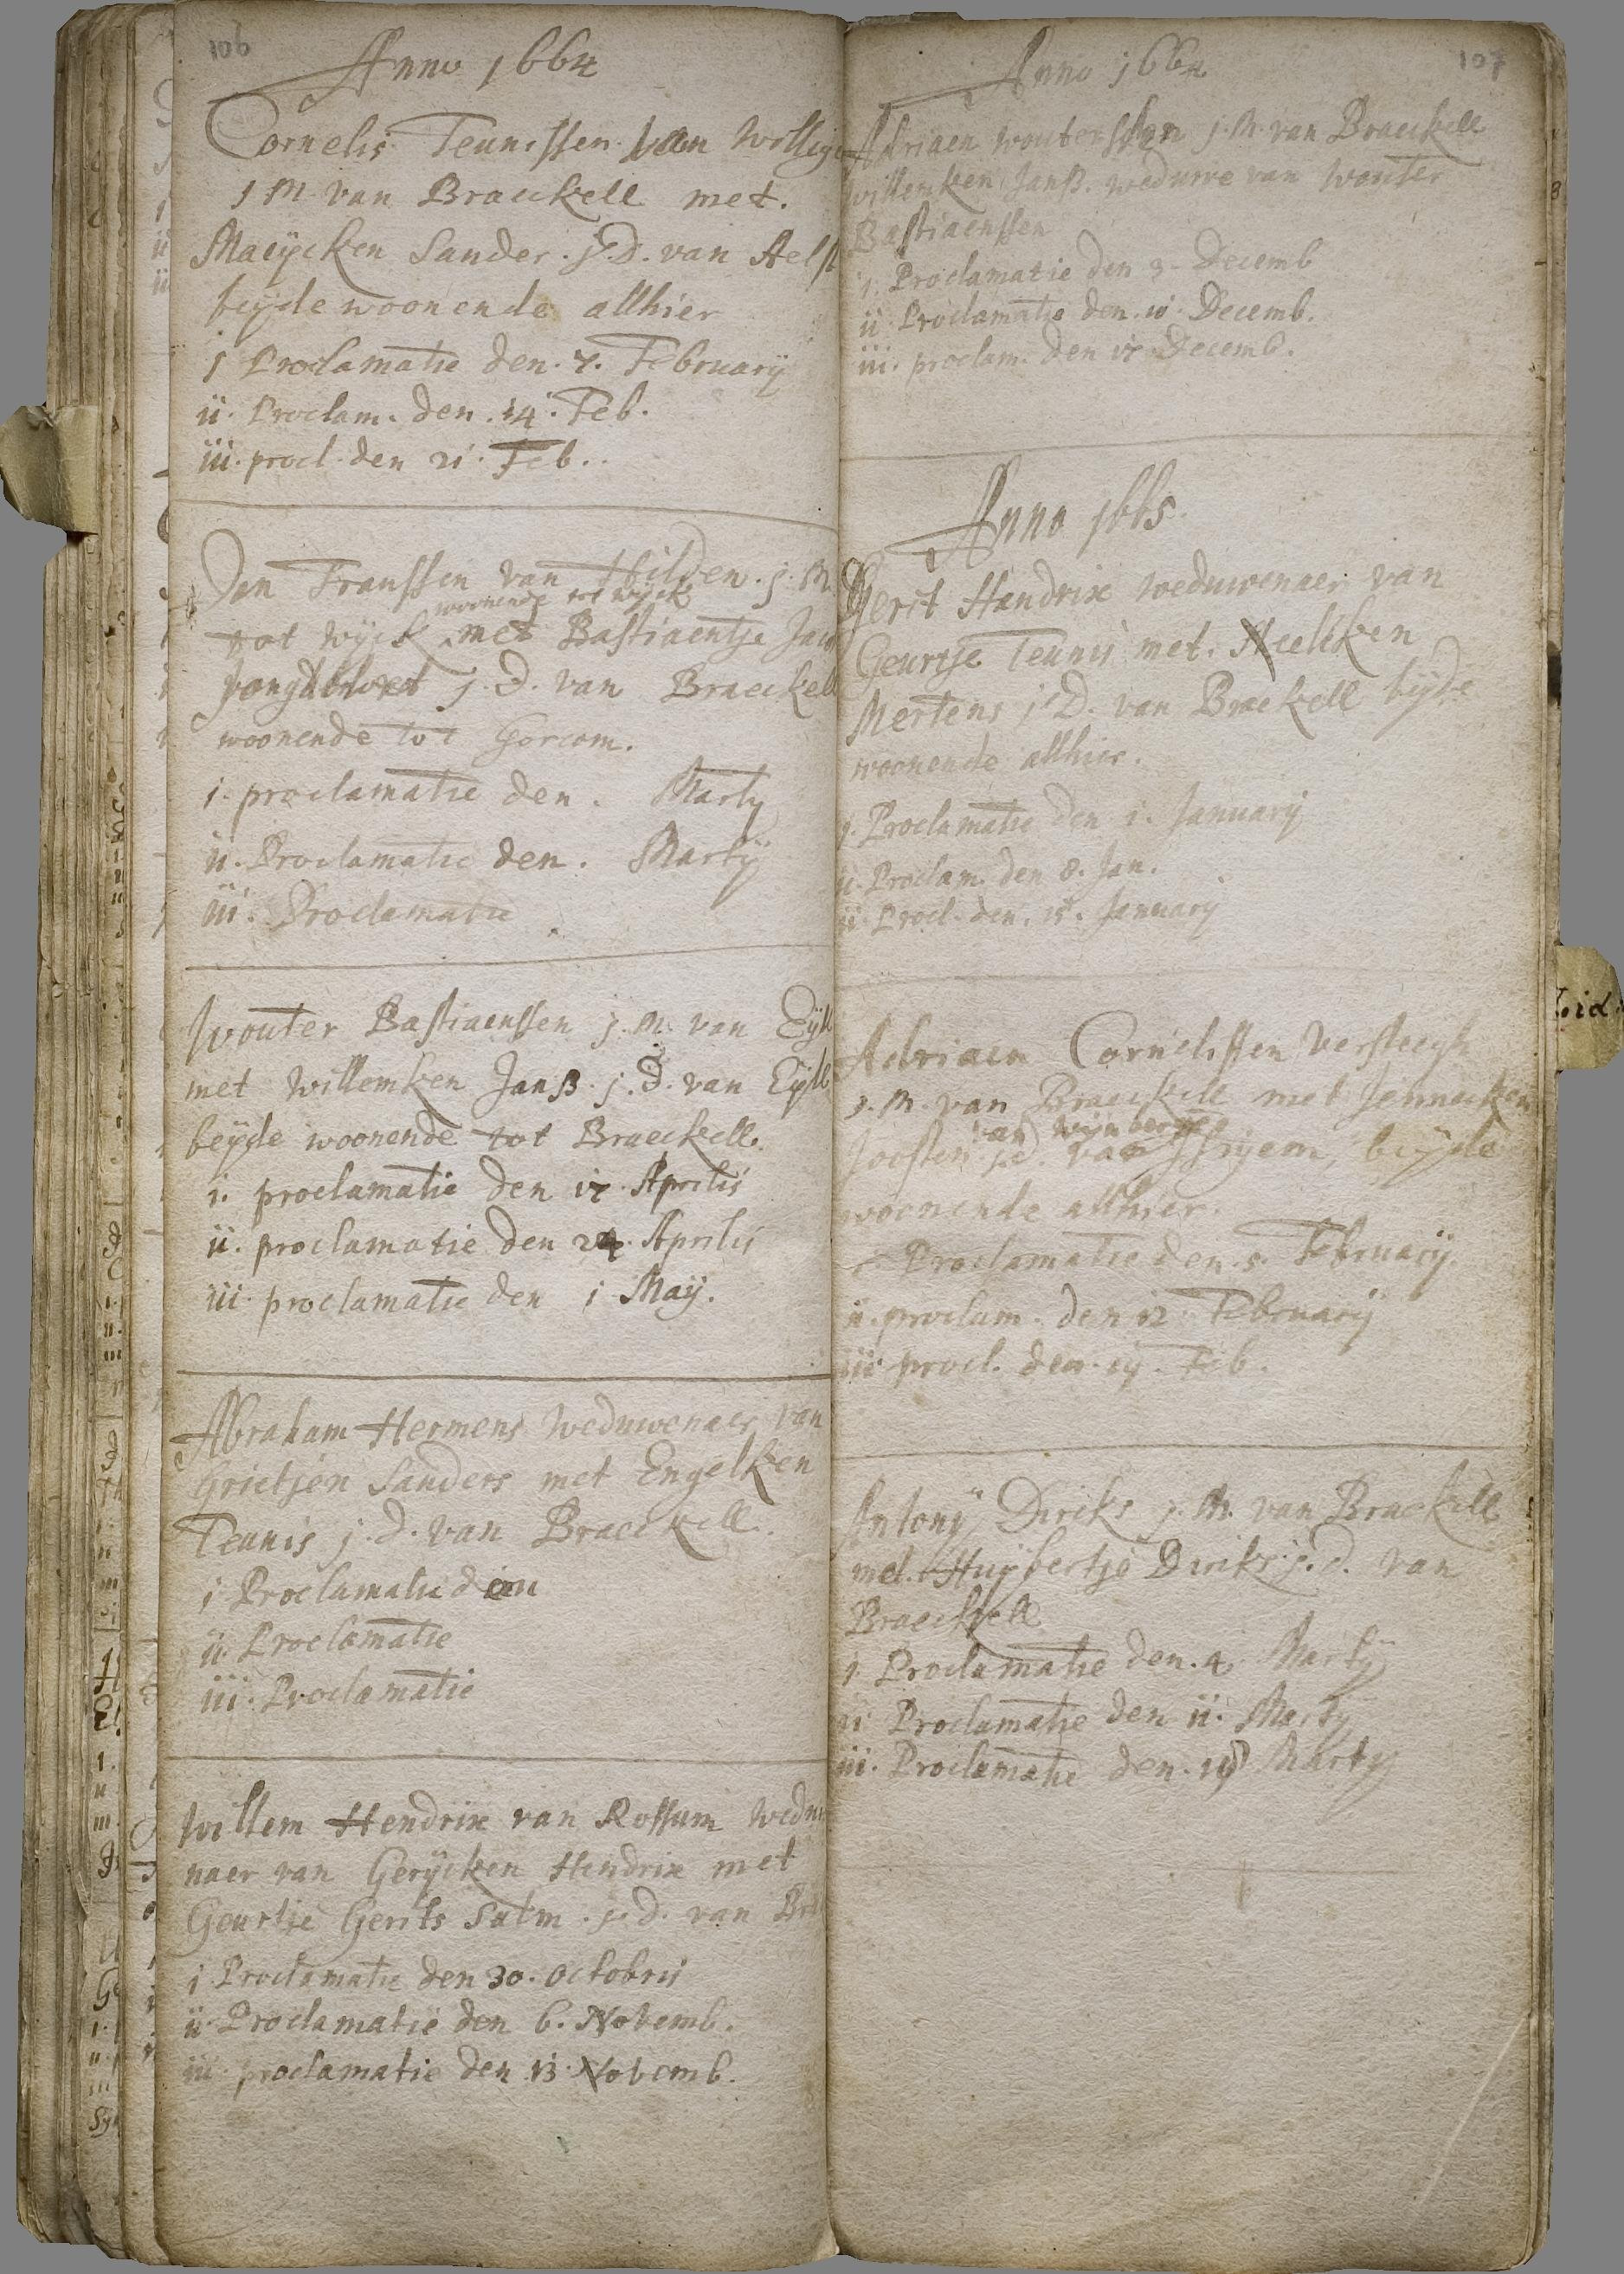 106
Anno 1664
Cornelis Teunissen van Willige
j M van Braeckell met.
Maeijcken Sander. j. D. van Aelst
beijde woonende allhier
j Proclamatie den. 7. February
ii. Proclam. den. 14. Feb.
iii. procl. den 21. Feb.
Jan Franssen van Hilden. j. M
woonende tot wijck
tot wijck met Bastiaentje
j. D. van Braeckell
woonende tot Gorcom.
i. proclamatie den. Marty
ii. Proclamatie den. Martij
iii. Proclamatie
Wouter Bastiaenssen j. M. van
met Willemken Janß. j. D. van
beijde woonende tot Braeckell.
i. proclamatie den 17. Aprilis
ii. proclamatie den 24. Aprilis
iii. proclamatie den 1 Maij.
Abraham Hermens Weduwenaer van
Grietjen Sanders met Engelken
Teunis j. d. van Braeckell.
i Proclamatie den
ii. Proclamatie
iii. Proclamatie
Willem Hendrix van Rossum Wedu
naer van Gerijcken Hendrix met
Geurtie Gerits Salm. j. d. van
i Proclamatie den 30. Octobris
ii. Proclamatie den 6. Novemb.
iii proclamatie den 13. Novemb.
107
Anno 1664
Adriaen Wouterssen j. M. van Braeckell
Willemken Janß. weduwe van Wouter
Bastiaenssen
j. Proclamatie den 3. Decemb
ii. Proclamatie den. 10. Decemb.
iii. proclam. den 17 Decemb.
Anno 1665.
Gerit Hendrix weduwenaer van
Geurtje Teunis met. Neelken
Mertens j D. van Braekell bijde
woonende allhier.
j. Proclamatie den 1. Januarij
ii. Proclam. den 8. Jan.
iii. Procl. den. 15. Januarij
Adriaen Cornelissen Versteegh
j. M. van Braeckell met Jennecken
van wijnbergen
Joosten j. d. van beijde
woonende allhier.
Proclamatie den. 5. Februarij
ii. proclam. den 12. Februarij
iii procl. den. 19. Feb.
Antonij Diriks j. M. van Braekell
met. Huijbertje Diriks j. d. van
Braeckell
j Proclamatie den. 4 Martij
ii Proclamatie den 11. Marty
iii. Proclamatie den. 18 Marty